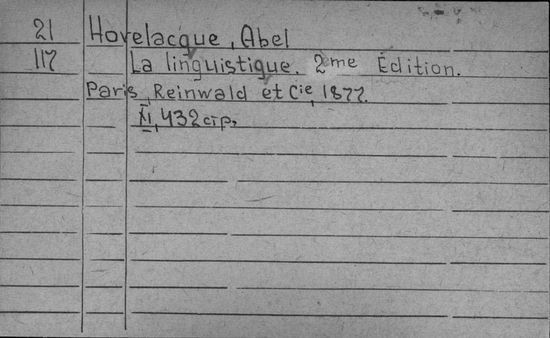 21 Hovelacque, Abel
117 La linguistique. 2me Edition.
Paris, Reinwald et Cie, 1877.
XI, 432 стр.